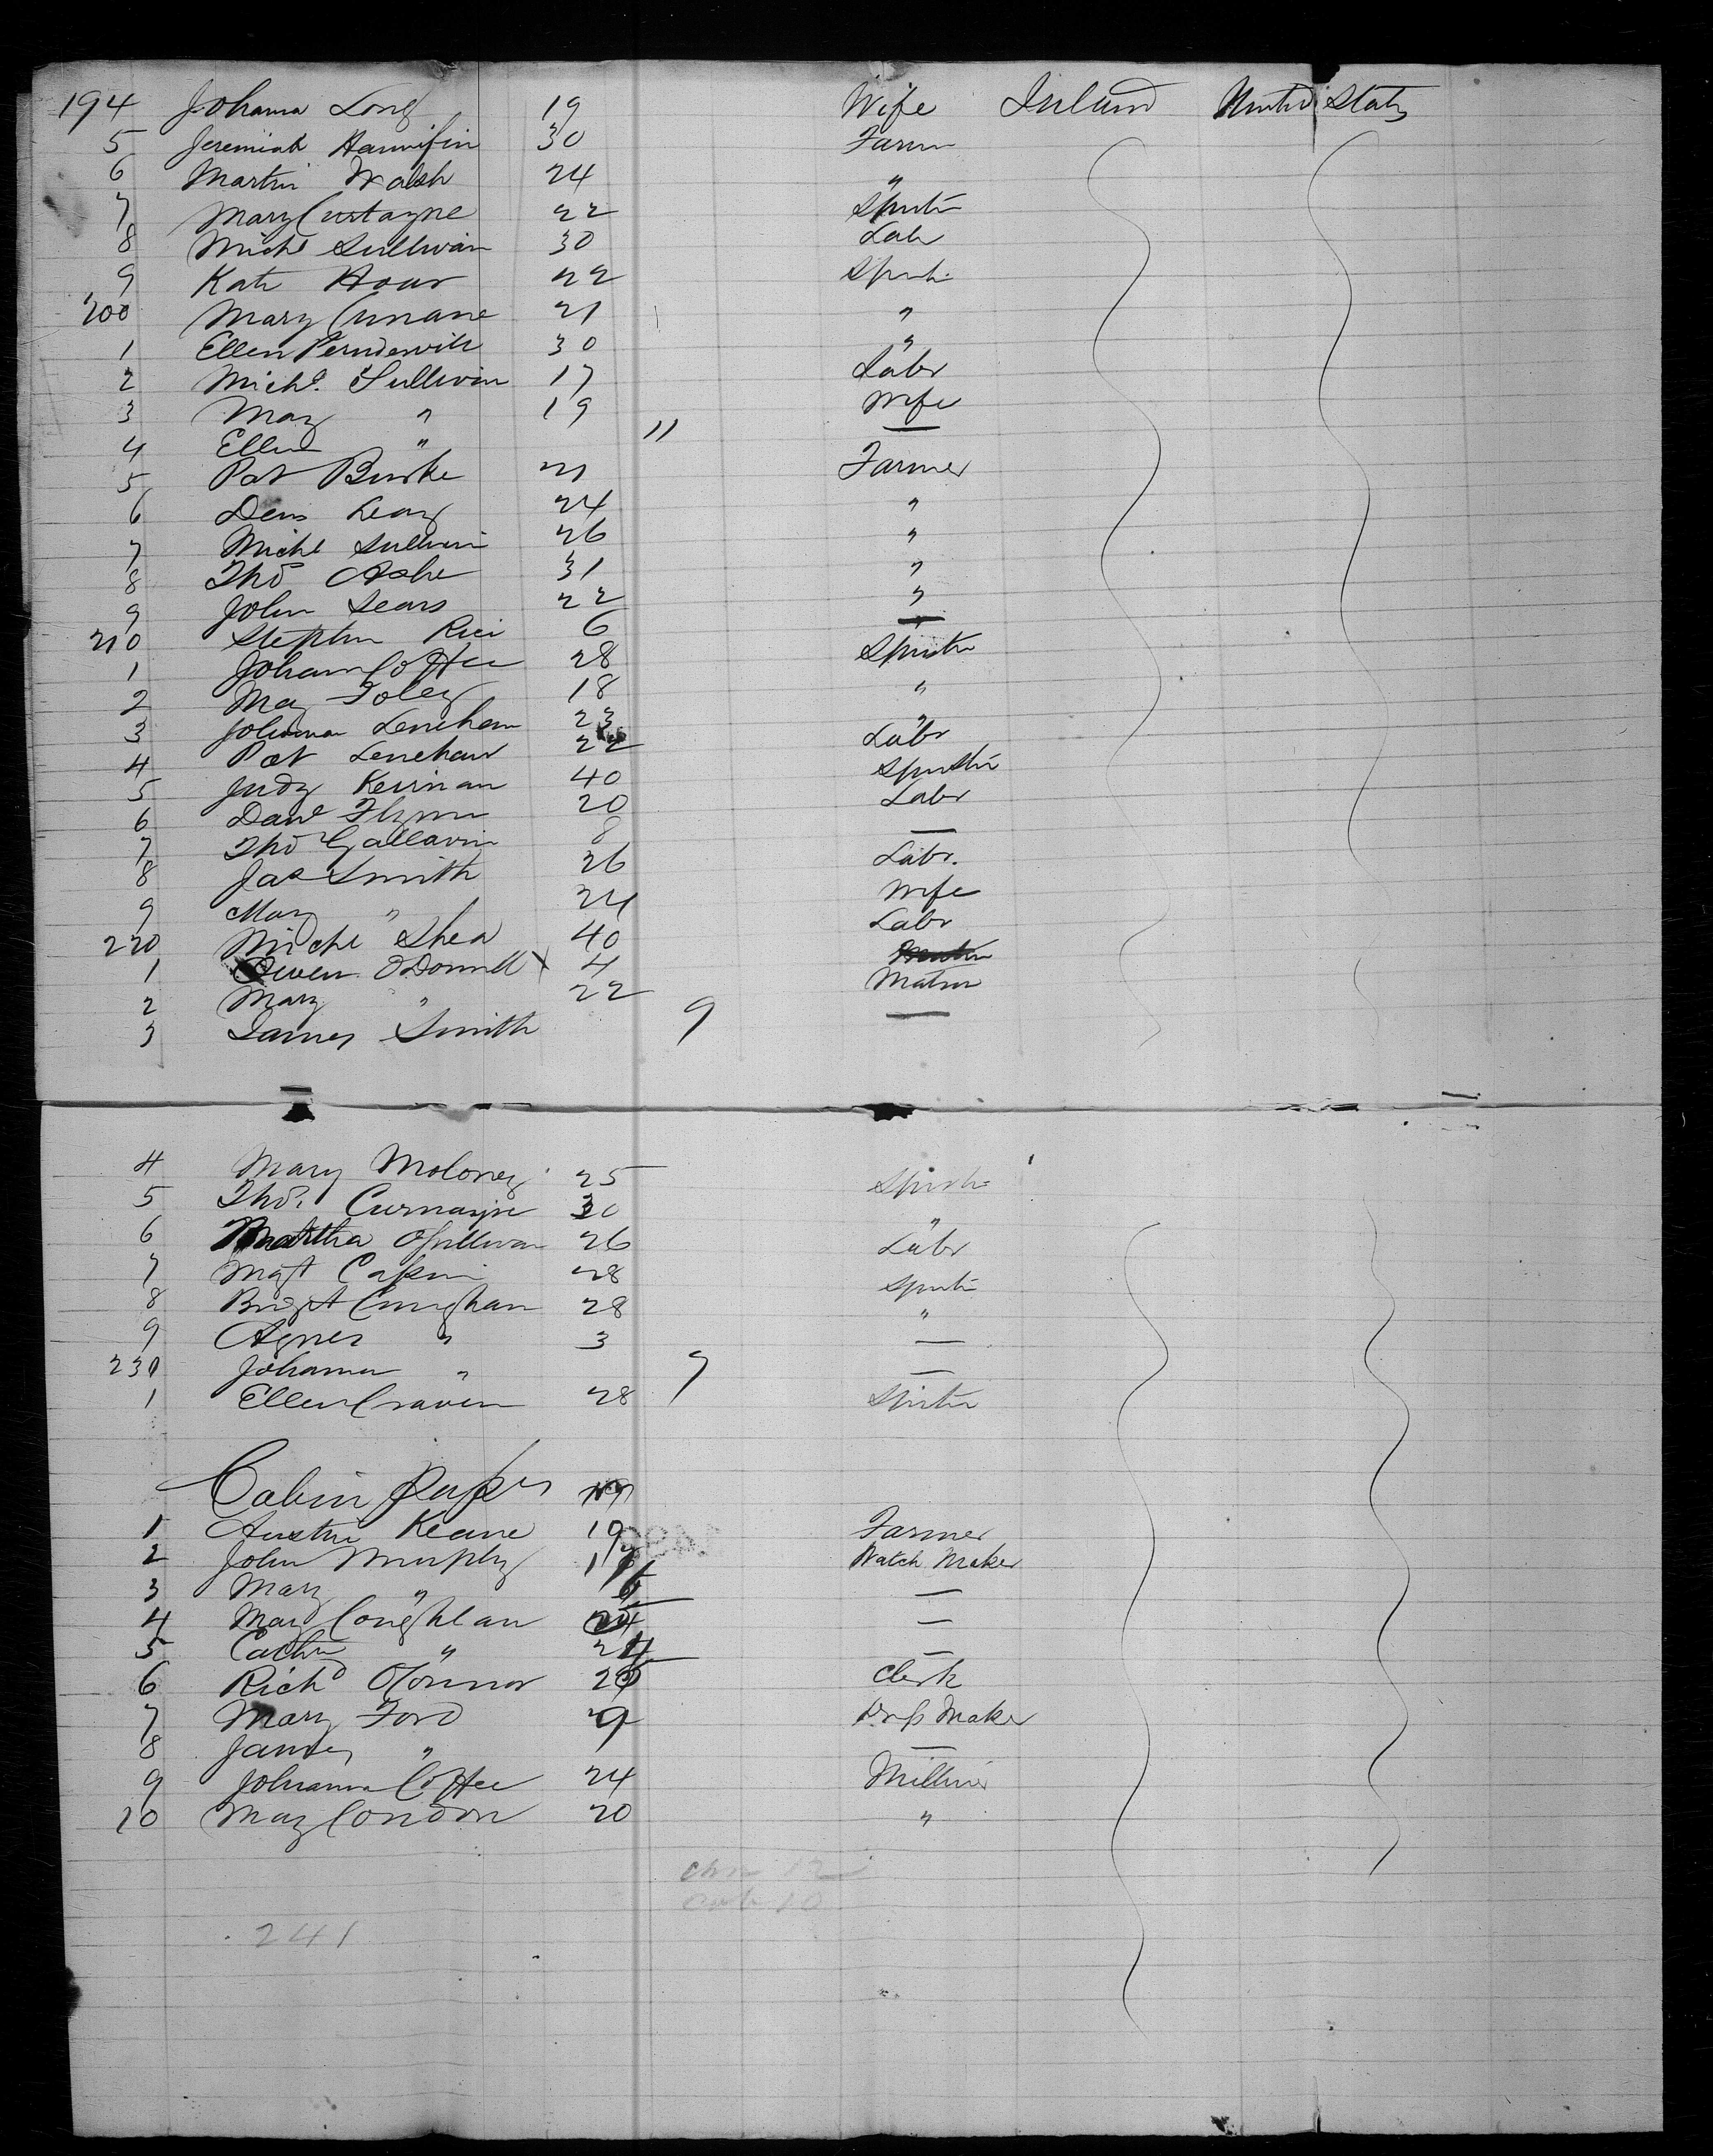 194 Johanna Long 19 Wife Ireland United States
5 Jeremiah Hannifin 30 Farmr
6 Martin Walsh 24 "
7 Mary Curtayne 22 Spinstr
8 Michl Sullivan 30 Labr
9 Kate Hour 22 Spinstr
200 Mary Cunane 21 "
1 Ellen 30 "
2 Michl. Sullivan 17 Labr
3 Mary " 19 Wife
4 Ellen " 11 —
5 Pat Burke 21 Farmer
6 Denis Leary 24 "
7 Michl Sullivan 26 "
8 Thos Ashe 31 "
9 John Sears 22 "
210 Stephen Rice 6 —
1 Johanna Coffee 28 Spinstr
2 Mary Foley 18 "
3 Johanna Lenehan 23 "
4 Pat Lenehan 22 Labr
5 Judy Kerinan 40 Spinstr
6 Danl Flynn 20 Labr
7 Thos Gallavin 8 —
8 Jas Smith 26 Labr.
9 Mary " 24 Wife
220 Michl Shea 40 Labr
1 Owen ODonnell 4
2 Mary " 22 Matron
3 James Smith 9 —
4 Mary Moloney 25 Spinstr
5 Thos. Curnayne 30 "
6 Osullivan 26 Labr
7 Mgt 28 Spinstr
8 Bridgt Cunighan 28 "
9 Agnes " 3 —
230 Johanna " 9 —
1 Ellen Craven 28 Spinstr
Cabin
1 Austin Keane 19 Farmer
2 John Murphy Watch Maker
3 Mary " —
4 Mary Coughlan —
5 Cathn " —
6 Richd OConnor Clerk
7 Mary Ford Drss Maker
8 James " —
9 Johanna Coffee 24 Milliner
10 Mary Condon 20 "
12
10
241